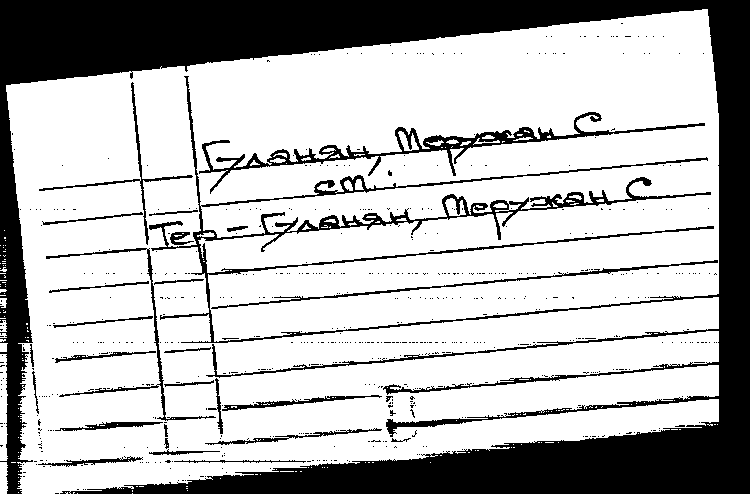 Гуланян, Меружан С
ст.:
Тер-Гуланян, Меружан С